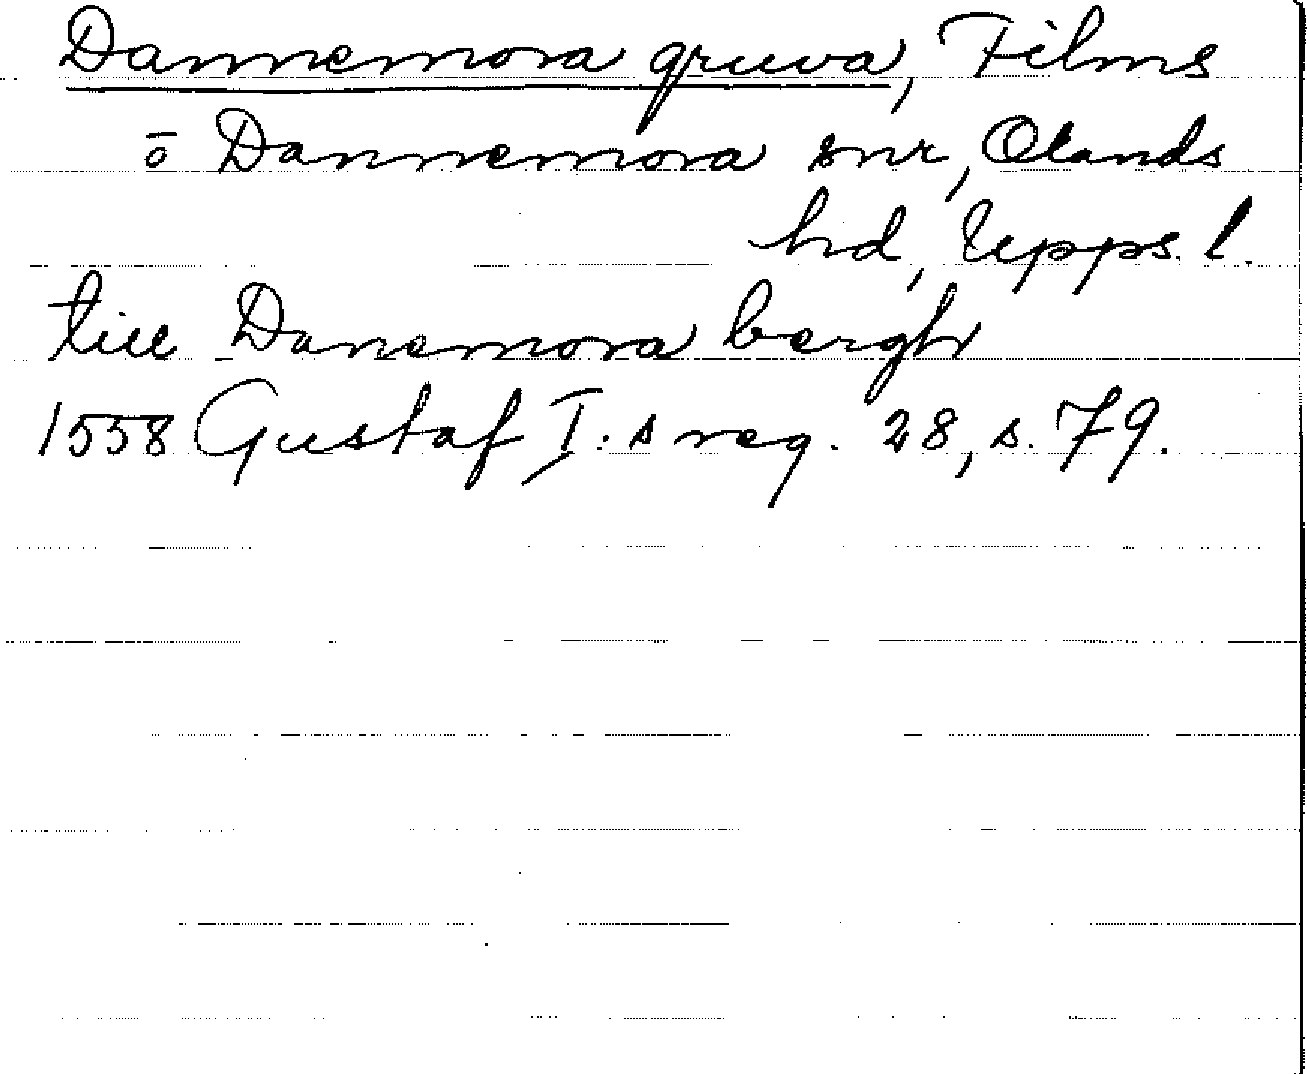 Dannemora gruva, Films
ō Dannemora snr, Olands
hd, Upps. l.
till Danemora bergh
1558 Gustaf I:s reg. 28, s. 79.